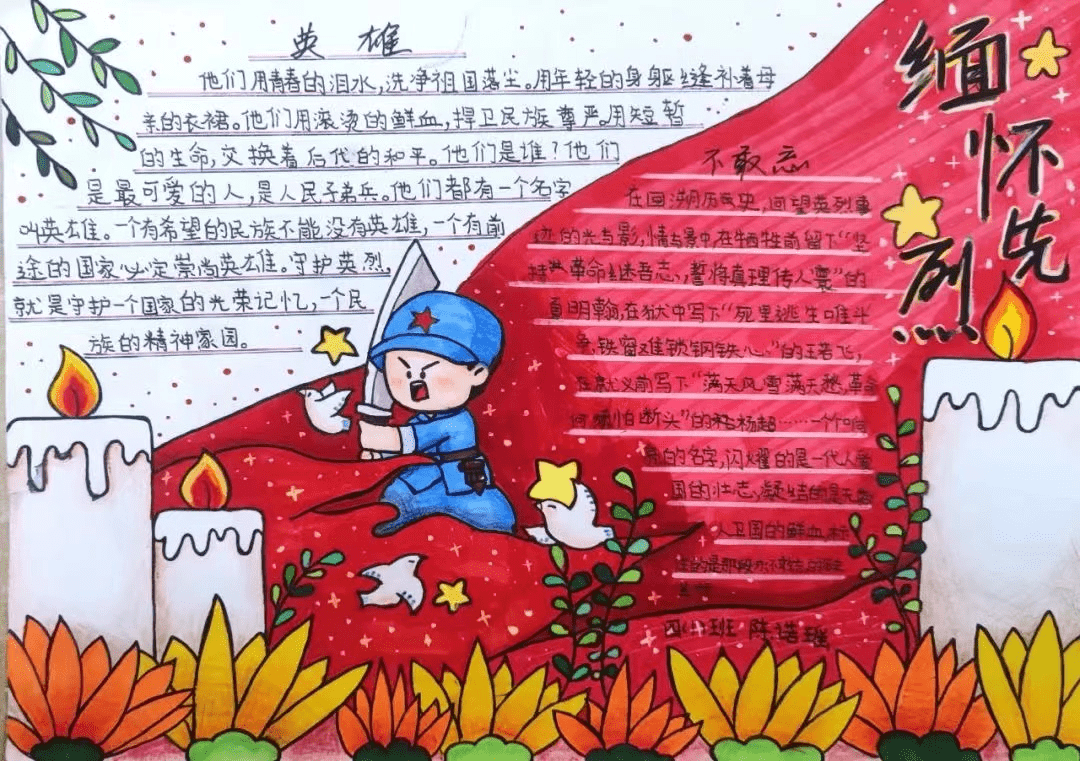 缅怀先烈
英雄
他们用青春的泪水,洗净祖国落尘。用年轻的身躯缝补着母
亲的衣裙。他们用滚烫的鲜血,捍卫民族尊严。用短暂
的生命,交换着后代的和平。他们是谁?他们
是最可爱的人,是人民子弟兵。他们都有一个名字
叫英雄。一个有希望的民族不能没有英雄,一个有前
途的国家必定崇尚英雄。守护英烈,
就是守护一个国家的光荣记忆,一个民
族的精神家园。
不敢忘
在回溯历史,回望英烈事
迹的光与影,情与景中,在牺牲前留下“坚
持革命继吾志,誓将真理传人寰”的
夏明翰,在狱中写下“死里逃生唯斗
争,铁窗难锁钢铁心”的王若飞,
在就义前写下“满天风雪满天愁,革命
何须怕断头”的杨超……一个个响
亮的名字,闪耀的是一代人爱
国的壮志,凝结的是无数
人卫国的鲜血,标
的是那段
班 陈诰